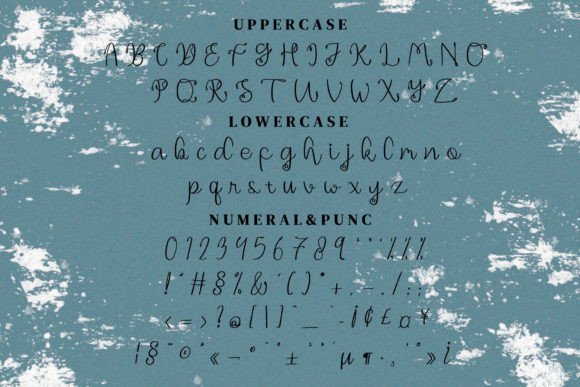 UPPERCASE
A B C D E F G H I J K L M N O
P Q R S T U V W X Y Z
LOWERCASE
a b c d e f g h i j k l m n o
p q r s t u v w x y z
NUMERAL&PUNC
0 1 2 3 4 5 6 7 8 9
! " # $ % & ' ( ) * + , - . / : ;
< = > ? @ [ \ ] ^ _ ` ~ ¡ ¢ £ ¤ ¥
¦ § ¨ © ª « ¬ ® ¯ ° ± ² ³ ´ µ ¶ · ¸ ¹ º » ¿